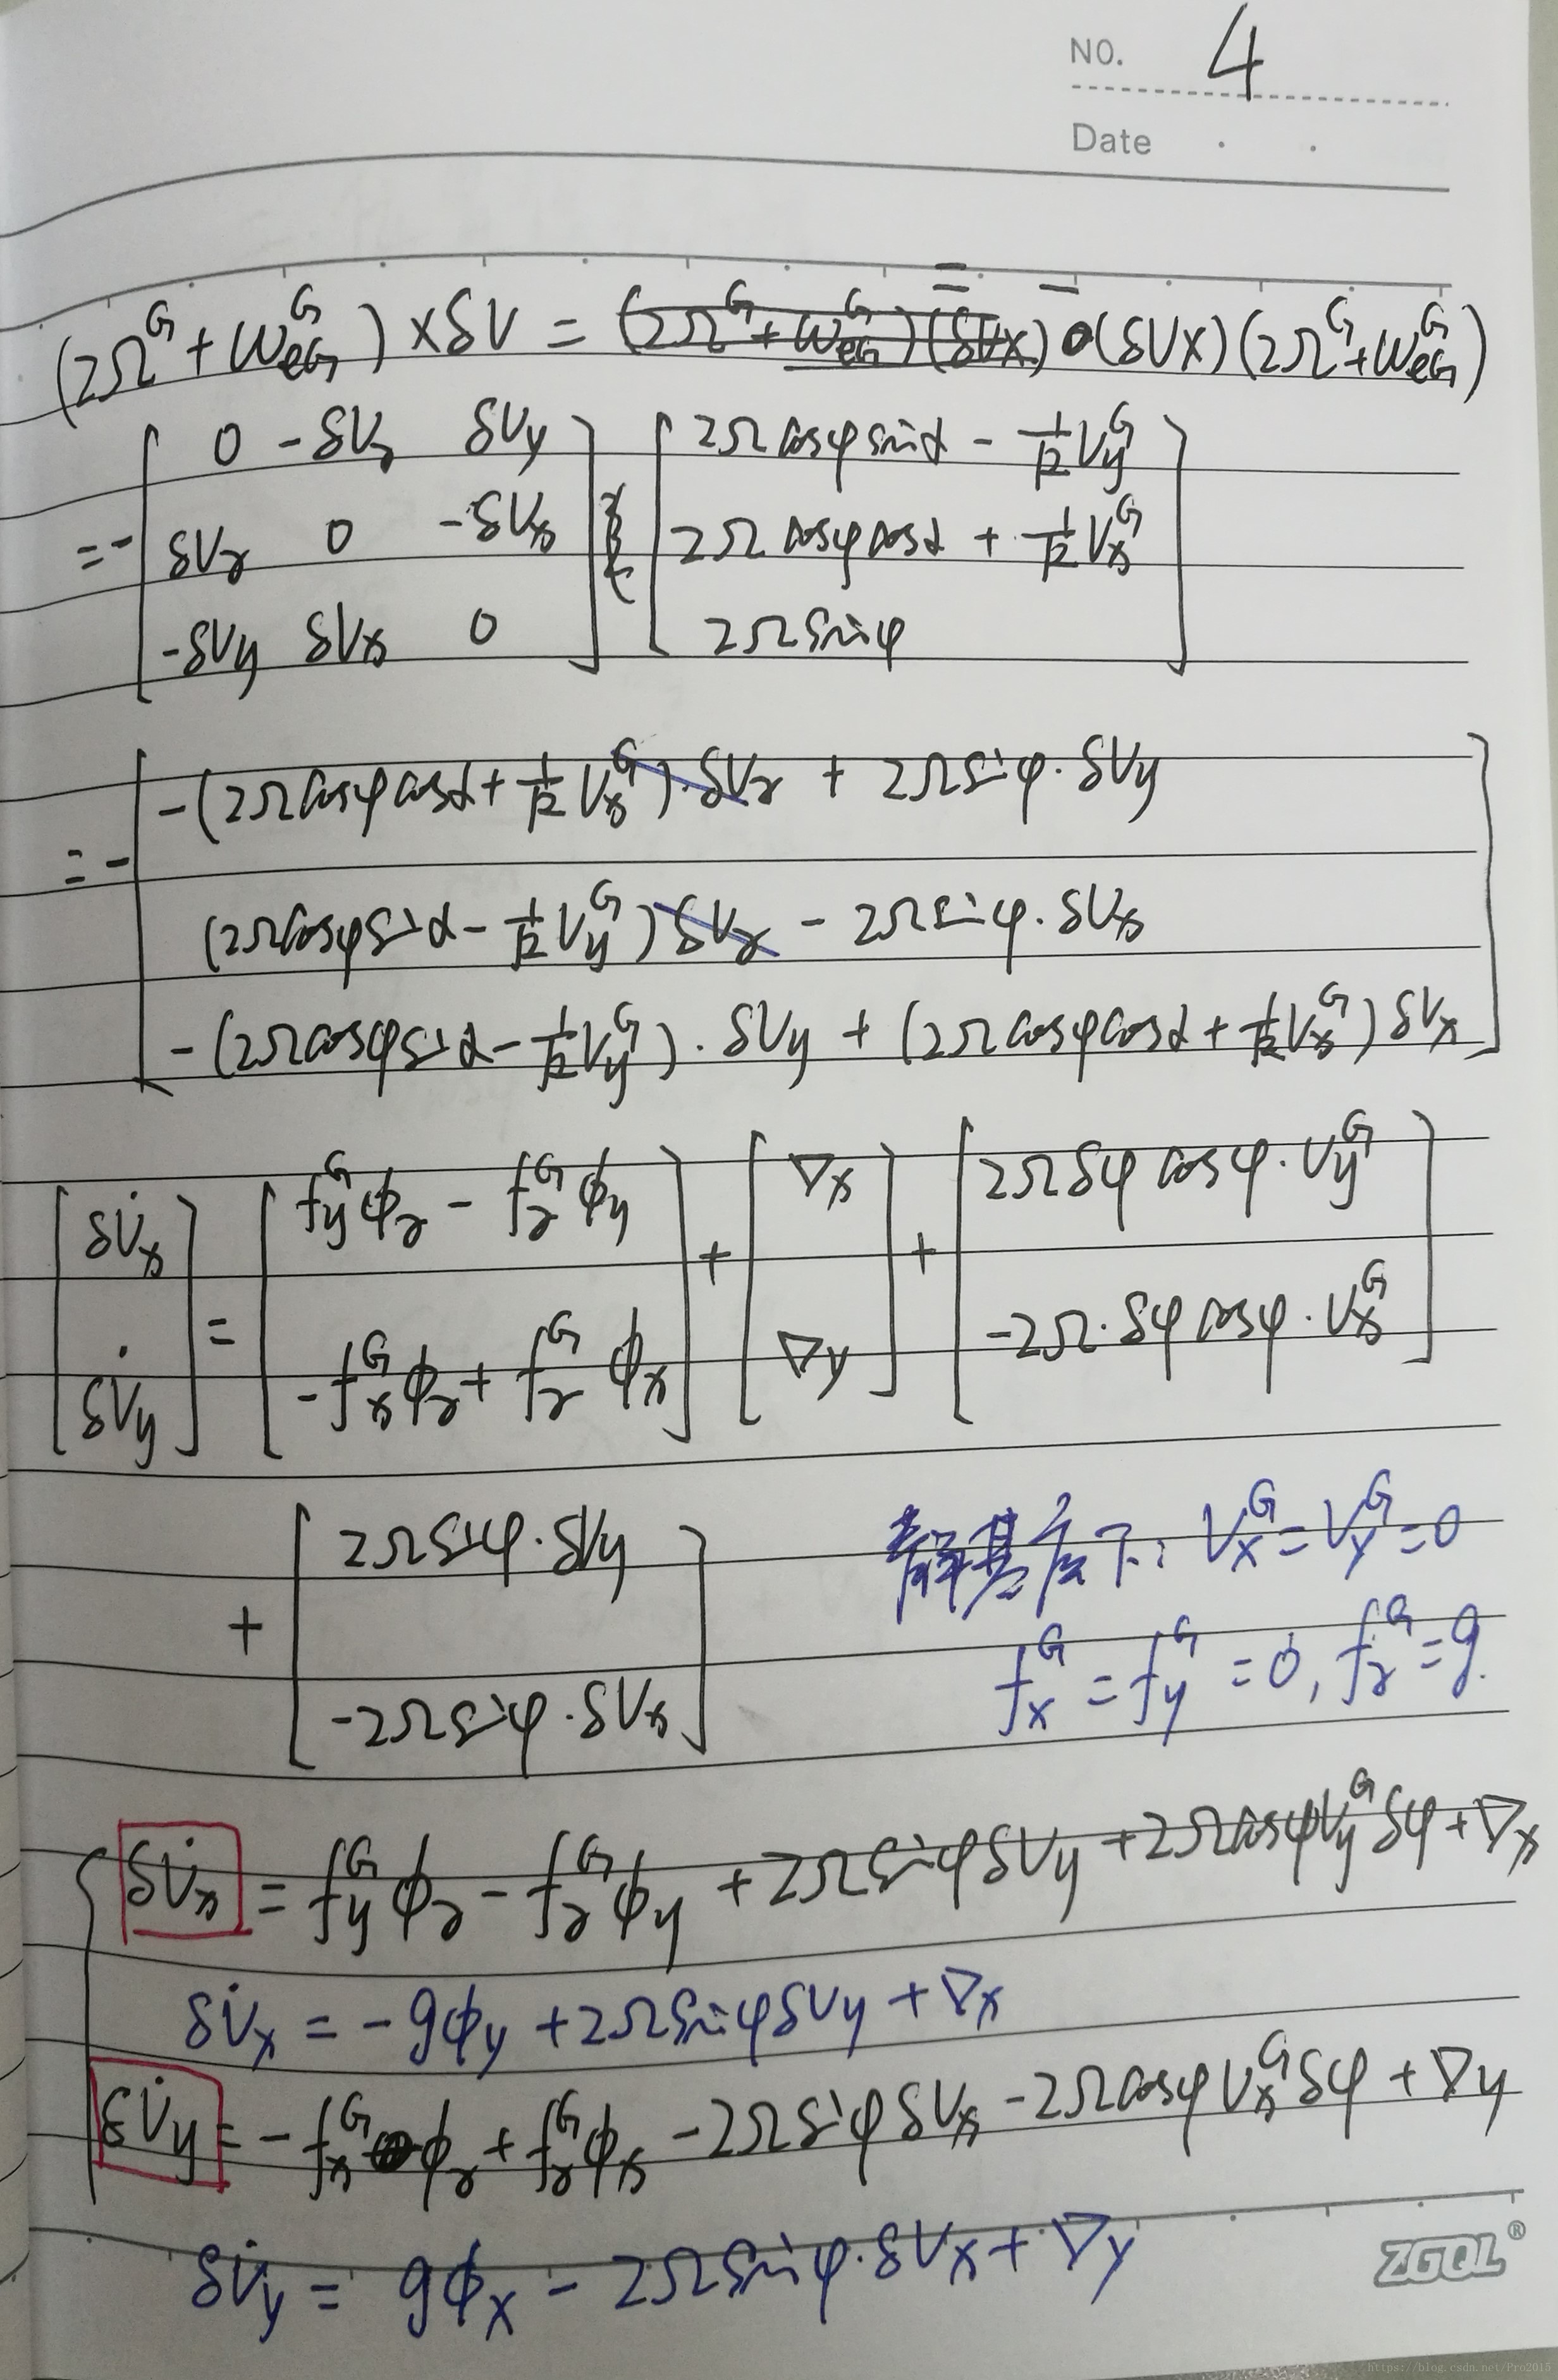 NO. 4
Date . .
(2Ω^G + ω_eG^G) × δV = -(δV×)(2Ω^G + ω_eG^G)
= - [ 0 -δV_z δV_y ; δV_z 0 -δV_x ; -δV_y δV_x 0 ] [ 2Ωcosφsinα - 1/R V_y^G ; 2Ωcosφcosα + 1/R V_x^G ; 2Ωsinφ ]
= - [ -(2Ωcosφcosα + 1/R V_x^G)·δV_z + 2Ωsinφ·δV_y
(2Ωcosφsinα - 1/R V_y^G)δV_z - 2Ωsinφ·δV_x
-(2Ωcosφsinα - 1/R V_y^G)·δV_y + (2Ωcosφcosα + 1/R V_x^G)δV_x ]
[ δV̇_x ; δV̇_y ] = [ f_y^G φ_z - f_z^G φ_y ; -f_x^G φ_z + f_z^G φ_x ] + [ ∇_x ; ∇_y ] + [ 2Ωδφcosφ·V_y^G ; -2Ω·δφcosφ·V_x^G ]
+ [ 2Ωsinφ·δV_y ; -2Ωsinφ·δV_x ]
静基座下: V_x^G = V_y^G = 0
f_x^G = f_y^G = 0, f_z^G = g.
δV̇_x = f_y^G φ_z - f_z^G φ_y + 2ΩsinφδV_y + 2ΩcosφV_y^G δφ + ∇_x
δV̇_x = -gφ_y + 2ΩsinφδV_y + ∇_x
δV̇_y = -f_x^G φ_z + f_z^G φ_x - 2ΩsinφδV_x - 2ΩcosφV_x^G δφ + ∇_y
δV̇_y = gφ_x - 2Ωsinφ·δV_x + ∇_y
ZGQL®
https://blog.csdn.net/Pro2015